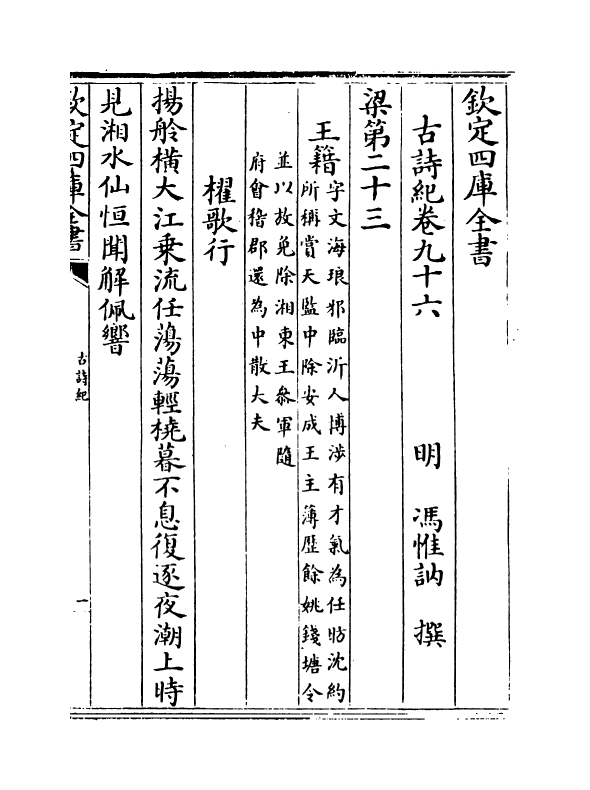 欽定四庫全書
古詩紀卷九十六 明 馮惟訥 撰
梁第二十三
王籍
字文海琅邪臨沂人博涉有才氣為任昉沈約
所稱賞天監中除安成王主薄歴餘姚錢塘令
並以放免除湘東王叅軍隨
府會稽郡還為中散大夫
櫂歌行
揚舲横大江乗流任蕩蕩輕橈暮不息復逐夜潮上時
見湘水仙恒聞解佩響
欽定四庫全書
古詩紀
一